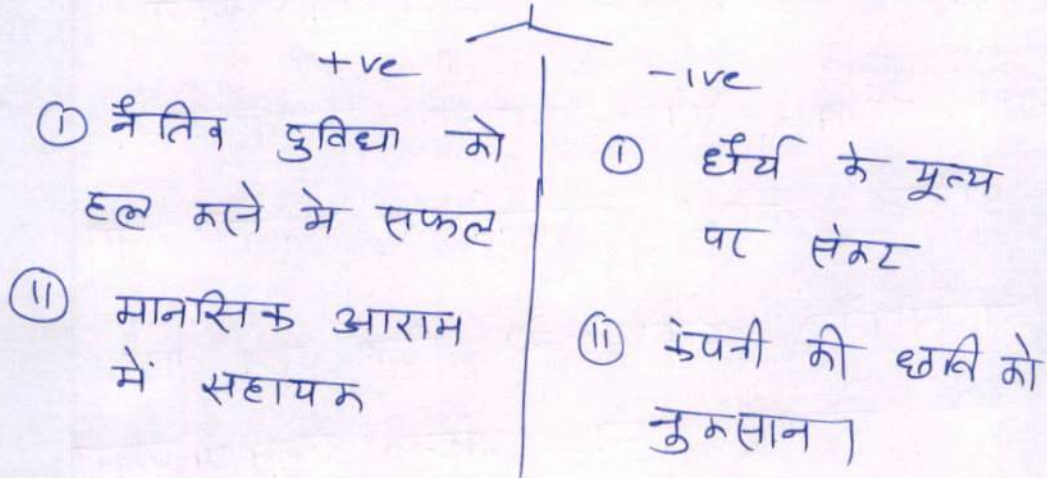 +ve
① नैतिक दुविधा को
हल करने मे सफल
⑪ मानसिक आराम
में सहायक
-ive
① धैर्य के मूल्य
पर संकट
⑪ कंपनी की छवि को
नुकसान।